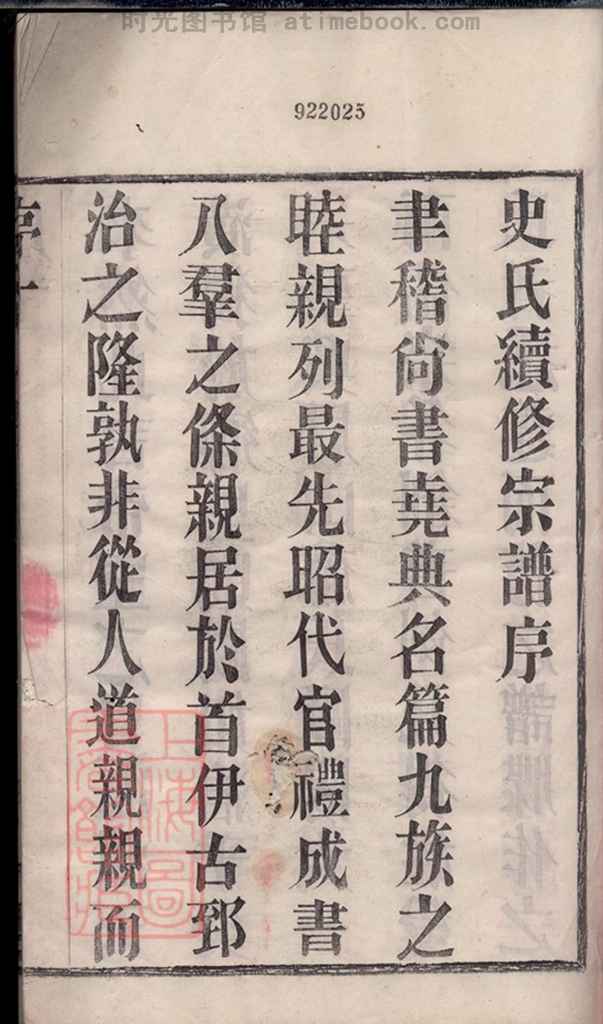 时光图书馆 atimebook.com
922025
史氏續修宗譜序
聿稽尙書堯典名篇九族之
睦親列最先昭代官禮成書
八羣之條親居於首伊古郅
治之隆孰非從人道親親而
序一